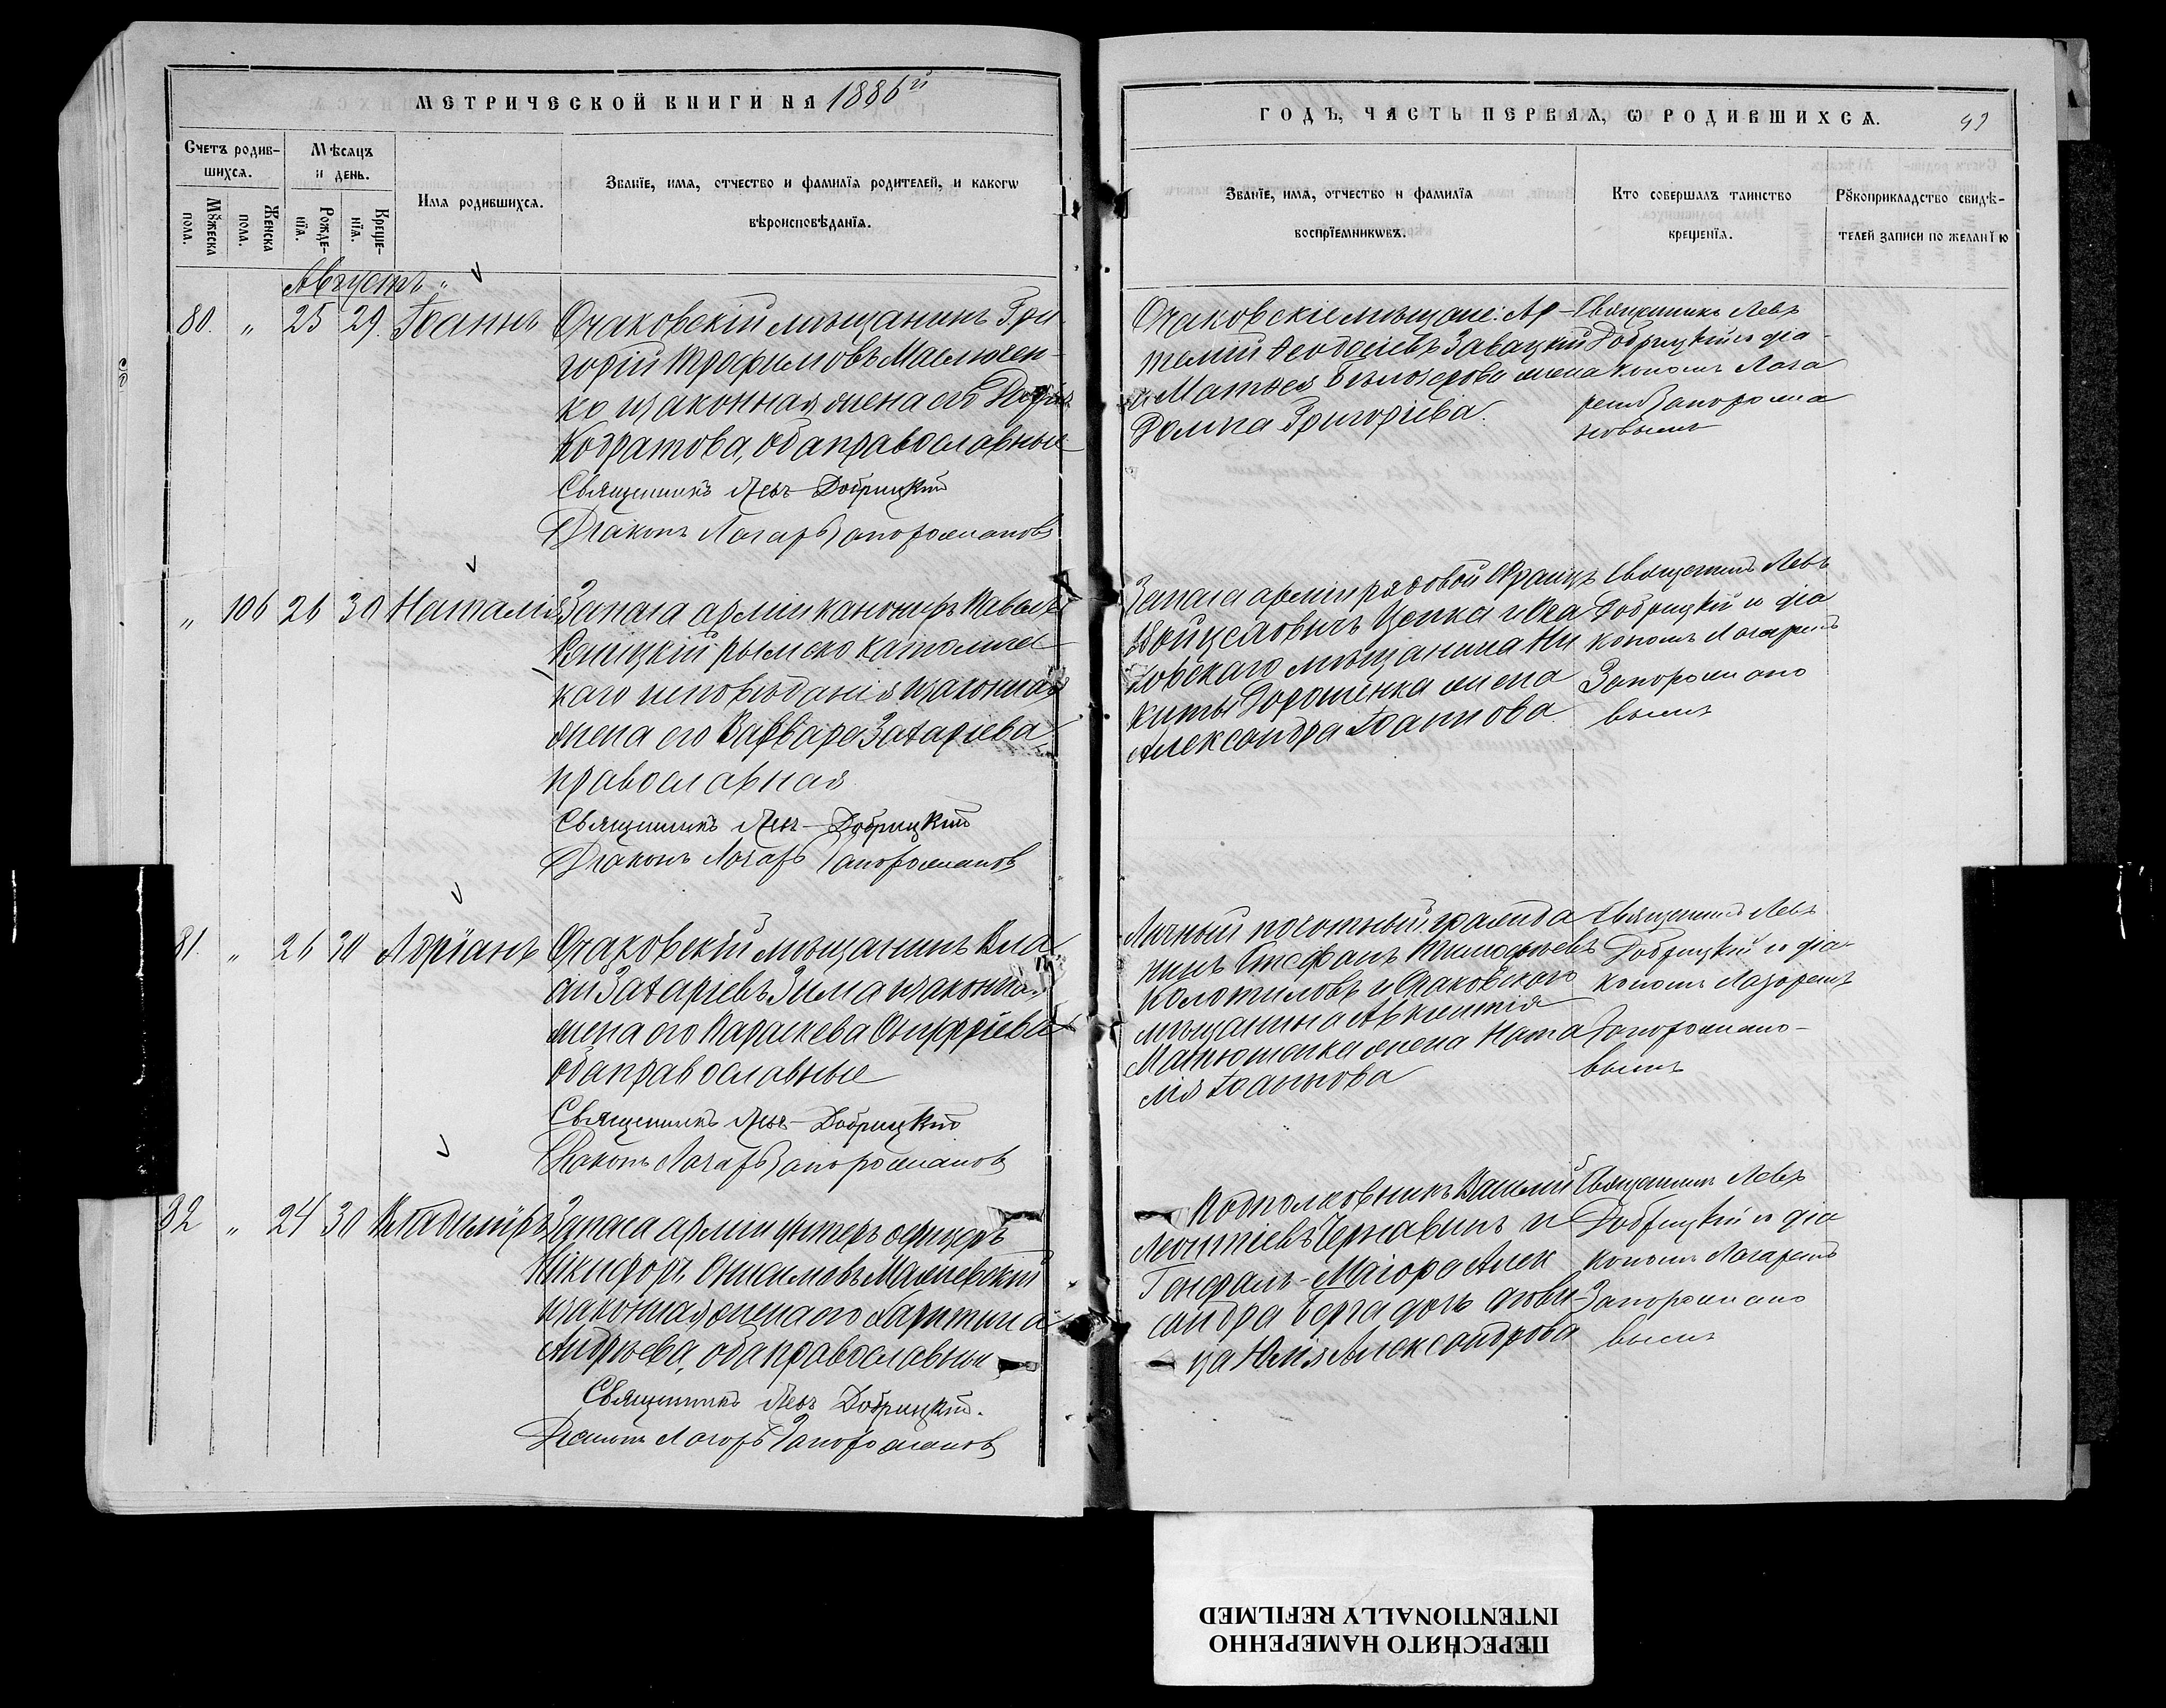 МЕТРИЧЕСКОЙ КНИГИ НА 1886й
ГОДЪ, ЧАСТЬ ПЕРВАЯ, Ѡ РОДИВШИХСѦ.
Счетъ родив-
шихсѧ.
Мѣсѧцъ
и день.
Мꙋжеска
пола.
Женска
пола.
Рожде-
нїѧ.
Креще-
нїѧ.
Имѧ родившихсѧ.
Званїе, имѧ, отчество и фамилїѧ родителей, и какогѡ
вѣроисповѣданїѧ.
Званїе, имѧ, отчество и фамилїѧ
воспрїемникѡвъ.
Кто совершалъ таинство
крещенїѧ.
Рꙋкоприкладство свидѣ-
телей записи по желанїю
Августъ
80. " 25 29. Іоаннъ
Очаковскій мѣщанинъ Гри
горій Трофимовъ Маслючен-
ко и законная жена его
Кодратова, оба православные
Священникъ Левъ Добрицкій
Діаконъ Лазарь Запорожановъ
Очаковскіе мѣщане: Ар-
темій Ѳеодосіевъ Завацкій
и Матвея Бѣлозерова жена
Домна Григоріева.
Священникъ Левъ
Добрицкій и діа-
кономъ Лаза
ремъ Запорожа
новымъ
" 106 26 30 Наталія
Запаса арміи канониръ Павелъ
римско католичес
каго исповѣданія и законная
жена его Варвара Захаріева
православная
Священникъ Левъ Добрицкій
Діаконъ Лазарь Запорожановъ
Запаса арміи рядовой Францъ
Войцеховичъ Цепка и Оча
ковскаго мѣщанина Ни
киты Дорошенка жена
Александра Іоаннова
Священникъ Левъ
Добрицкій и діа
кономъ Лазаремъ
Запорожано
вымъ
81. " 26 30 Адріанъ
Очаковскій мѣщанинъ Вла
сій Захаріевъ Зима и законная
жена его Параскева Онуфріева
оба православные
Священникъ Левъ Добрицкій
Діаконъ Лазарь Запорожановъ
Личный почотный гражда
нинъ Стефанъ Тимофѣевъ
Колотиловъ и Очаковскаго
мѣщанина Авксентія
Матюшенка жена Ната
лія Іоаннова
Священникъ Левъ
Добрицкій и діа-
кономъ Лазаремъ
Запорожано-
вымъ
82 " 24 30 Владиміръ
Запаса арміи унтеръ офицеръ
Никифоръ Онисимовъ
и законная жена его Харитина
Андрѣева, оба православные
Священникъ Левъ Добрицкій.
Діаконъ Лазарь Запорожановъ
Подполковникъ Василій
Леонтіевъ Чернавинъ и
Генералъ-Маіора Алек
сандра Берга дочь дѣви-
ца Юлія Александрова
Священникъ Левъ
Добрицкій и діа
кономъ Лазаремъ
Запорожано
вымъ
ПЕРЕСНЯТО НАМЕРЕННО
INTENTIONALLY REFILMED